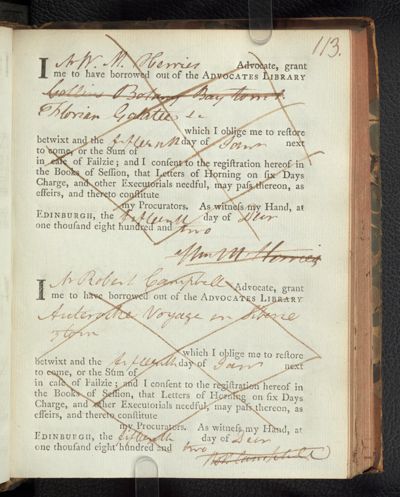 113.
I Mr W. M. Herries Advocate, grant
me to have borrowed out of the ADVOCATES LIBRARY
Collins Botany Bay tom 1
Florian Galatee
which I oblige me to reſtore
betwixt and the fifteenth day of Jany next
to come, or the Sum of
in caſe of Failzie; and I conſent to the regiſtration hereof in
the Books of Seſſion, that Letters of Horning on ſix Days
Charge, and other Executorials needful, may paſs thereon, as
effeirs, and thereto conſtitute
my Procurators. As witneſs my Hand, at
EDINBURGH, the fifteenth day of Decr
one thouſand eight hundred and two
Wm M Herries
I Mr Robert Campbell Advocate, grant
me to have borrowed out of the ADVOCATES LIBRARY
Voyage en
which I oblige me to reſtore
betwixt and the fifteenth day of Jany next
to come, or the Sum of
in caſe of Failzie; and I conſent to the regiſtration hereof in
the Books of Seſſion, that Letters of Horning on ſix Days
Charge, and other Executorials needful, may paſs thereon, as
effeirs, and thereto conſtitute
my Procurators. As witneſs my Hand, at
EDINBURGH, the fifteenth day of Decr
one thouſand eight hundred and two
Campbell